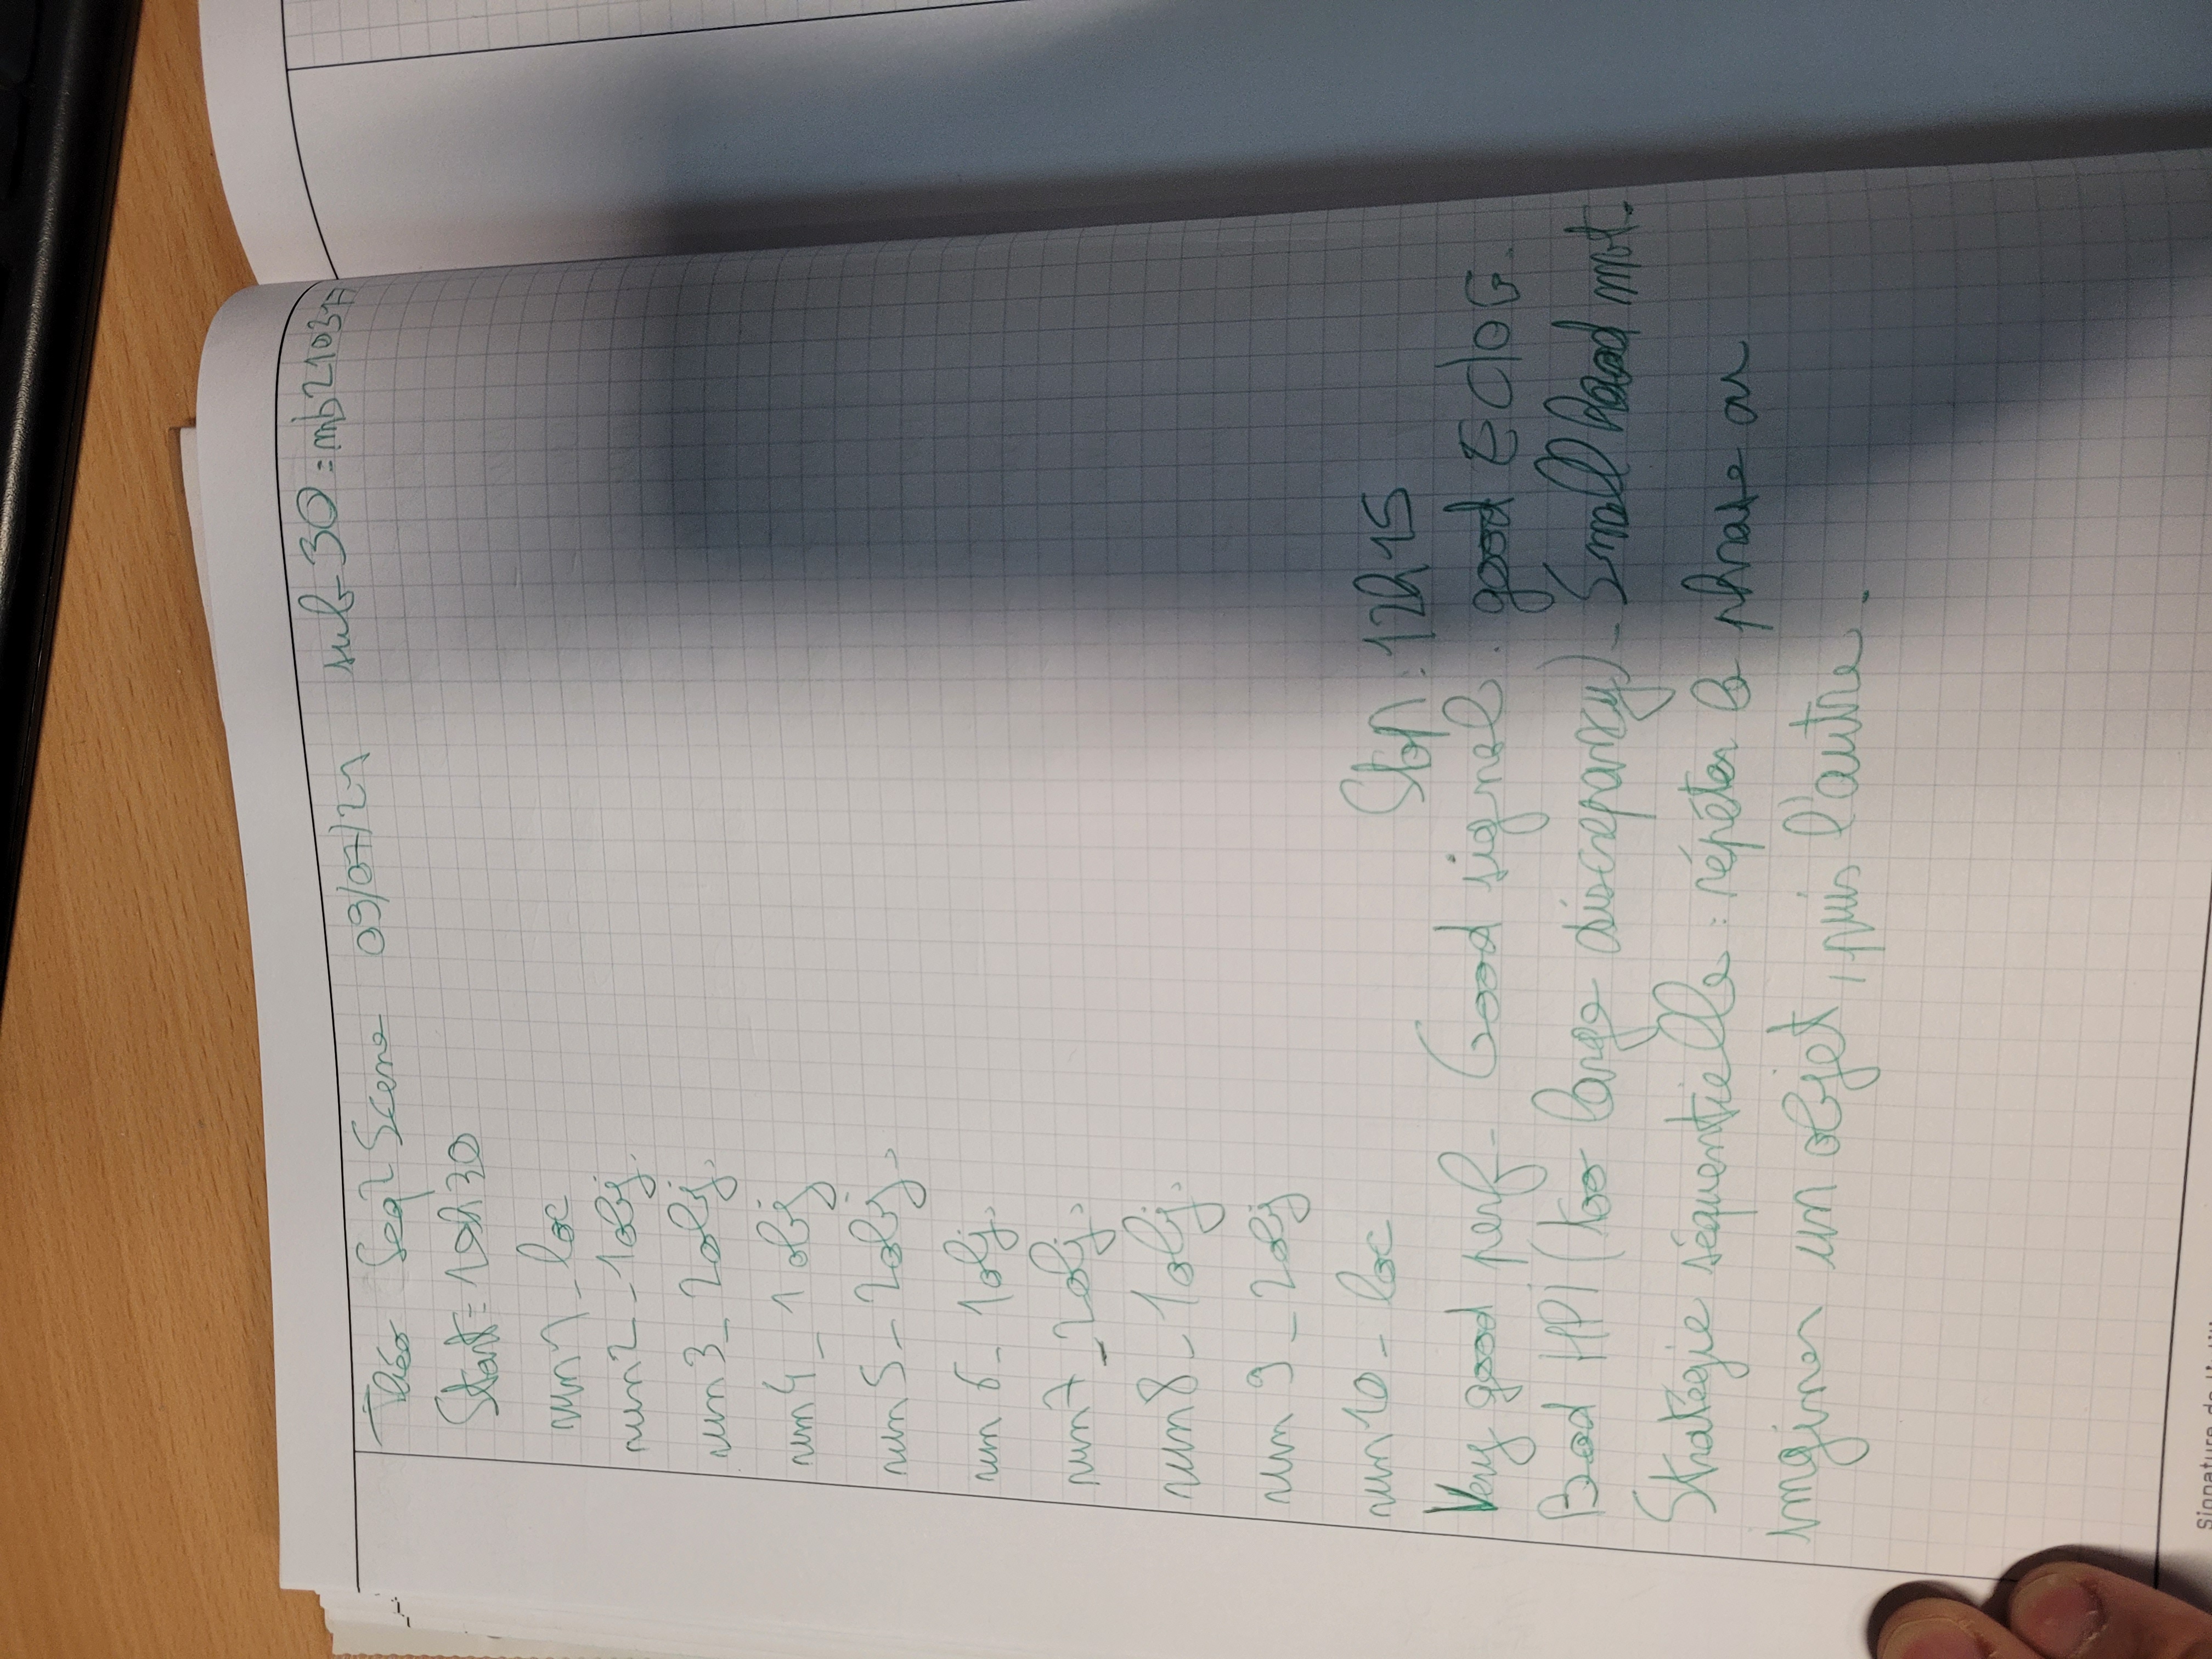 Théo Seq2Scene 09/07/21 sub-30 = mb210317
Start = 10h30
run1_loc
run2_1obj.
run3_2obj.
run4_1obj
run5_2obj.
run6_1obj.
run7_2obj.
run8_1obj.
run9_2obj
run10_loc Stop: 12h15
Very good perf- Good signal. good E C/O G.
Bad HPI (too large discrepancy)- Small head mvt.
Stratégie séquentielle: répéter la phrase ou
imginer un objet, puis l'autre.
Signature de